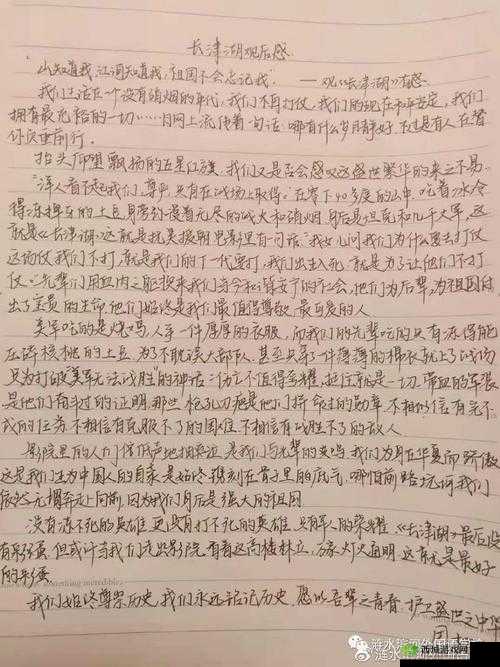 长津湖观后感
山知道我,江河知道我,祖国不会忘记我" —— 观《长津湖》有感
我们生活在一个没有硝烟的年代,我们不再打仗,我们的现在和平安定,我们
拥有最充裕的一切……日网上流传着一句话:哪有什么岁月静好,不过是有人在替
你负重前行。
抬头仰望飘扬的五星红旗,我们又是否会感叹这盛世繁华的来之不易。
"洋人看不起我们,尊严只有在战场上取得。"在零下40多度的山中,吃着冰冷
得冻掉牙的土豆,身旁弥漫着无尽的战火和硝烟,身后是坦克和几千大军,这
就是《长津湖》,这就是抗美援朝。电影里有句话:"我女儿问我们为什么要去打仗
这场仗我们不打,就是我们的下一代要打,我们出生入死,就是为了让他们不打
仗。"先辈们用血肉之躯换来我们当今和谐安宁的社会,他们为后辈,为祖国付
出了宝贵的生命,他们始终是我们最值得尊敬、最可爱的人
美军吃的是烤鸡,人手一件厚厚的衣服,而我们的先辈吃的只有冻得能
压碎核桃的土豆,为了不耽误大部队,甚至只穿了一件薄薄的棉衣就上了战场
只为打破"美军无法战胜"的神话:伤亡不值得荣耀,挺住就是一切,带血的军装
是他们奋斗过的证明,那些枪孔刀疤是他们拼命过的勋章,不相信有完不
成的任务,不相信有克服不了的困难,不相信有战胜不了的敌人
影院里的人们低声地抽泣
这是我们生为中国人的自豪,是始终镌刻在骨子里的底气,哪怕前路坑洼我们
依然元帽奔走向前,因为我们身后是强大的祖国
没有冻不死的英雄,更没有打不死的英雄,只有军人的荣耀,《长津湖》最后没
有彩蛋,但或许当我们走出影院,看着这高楼林立,万家灯火通明,这就是最好
的彩蛋
something incredible
我们始终尊崇历史,我们永远铭记历史,愿以吾辈之青春,护卫盛世之中华